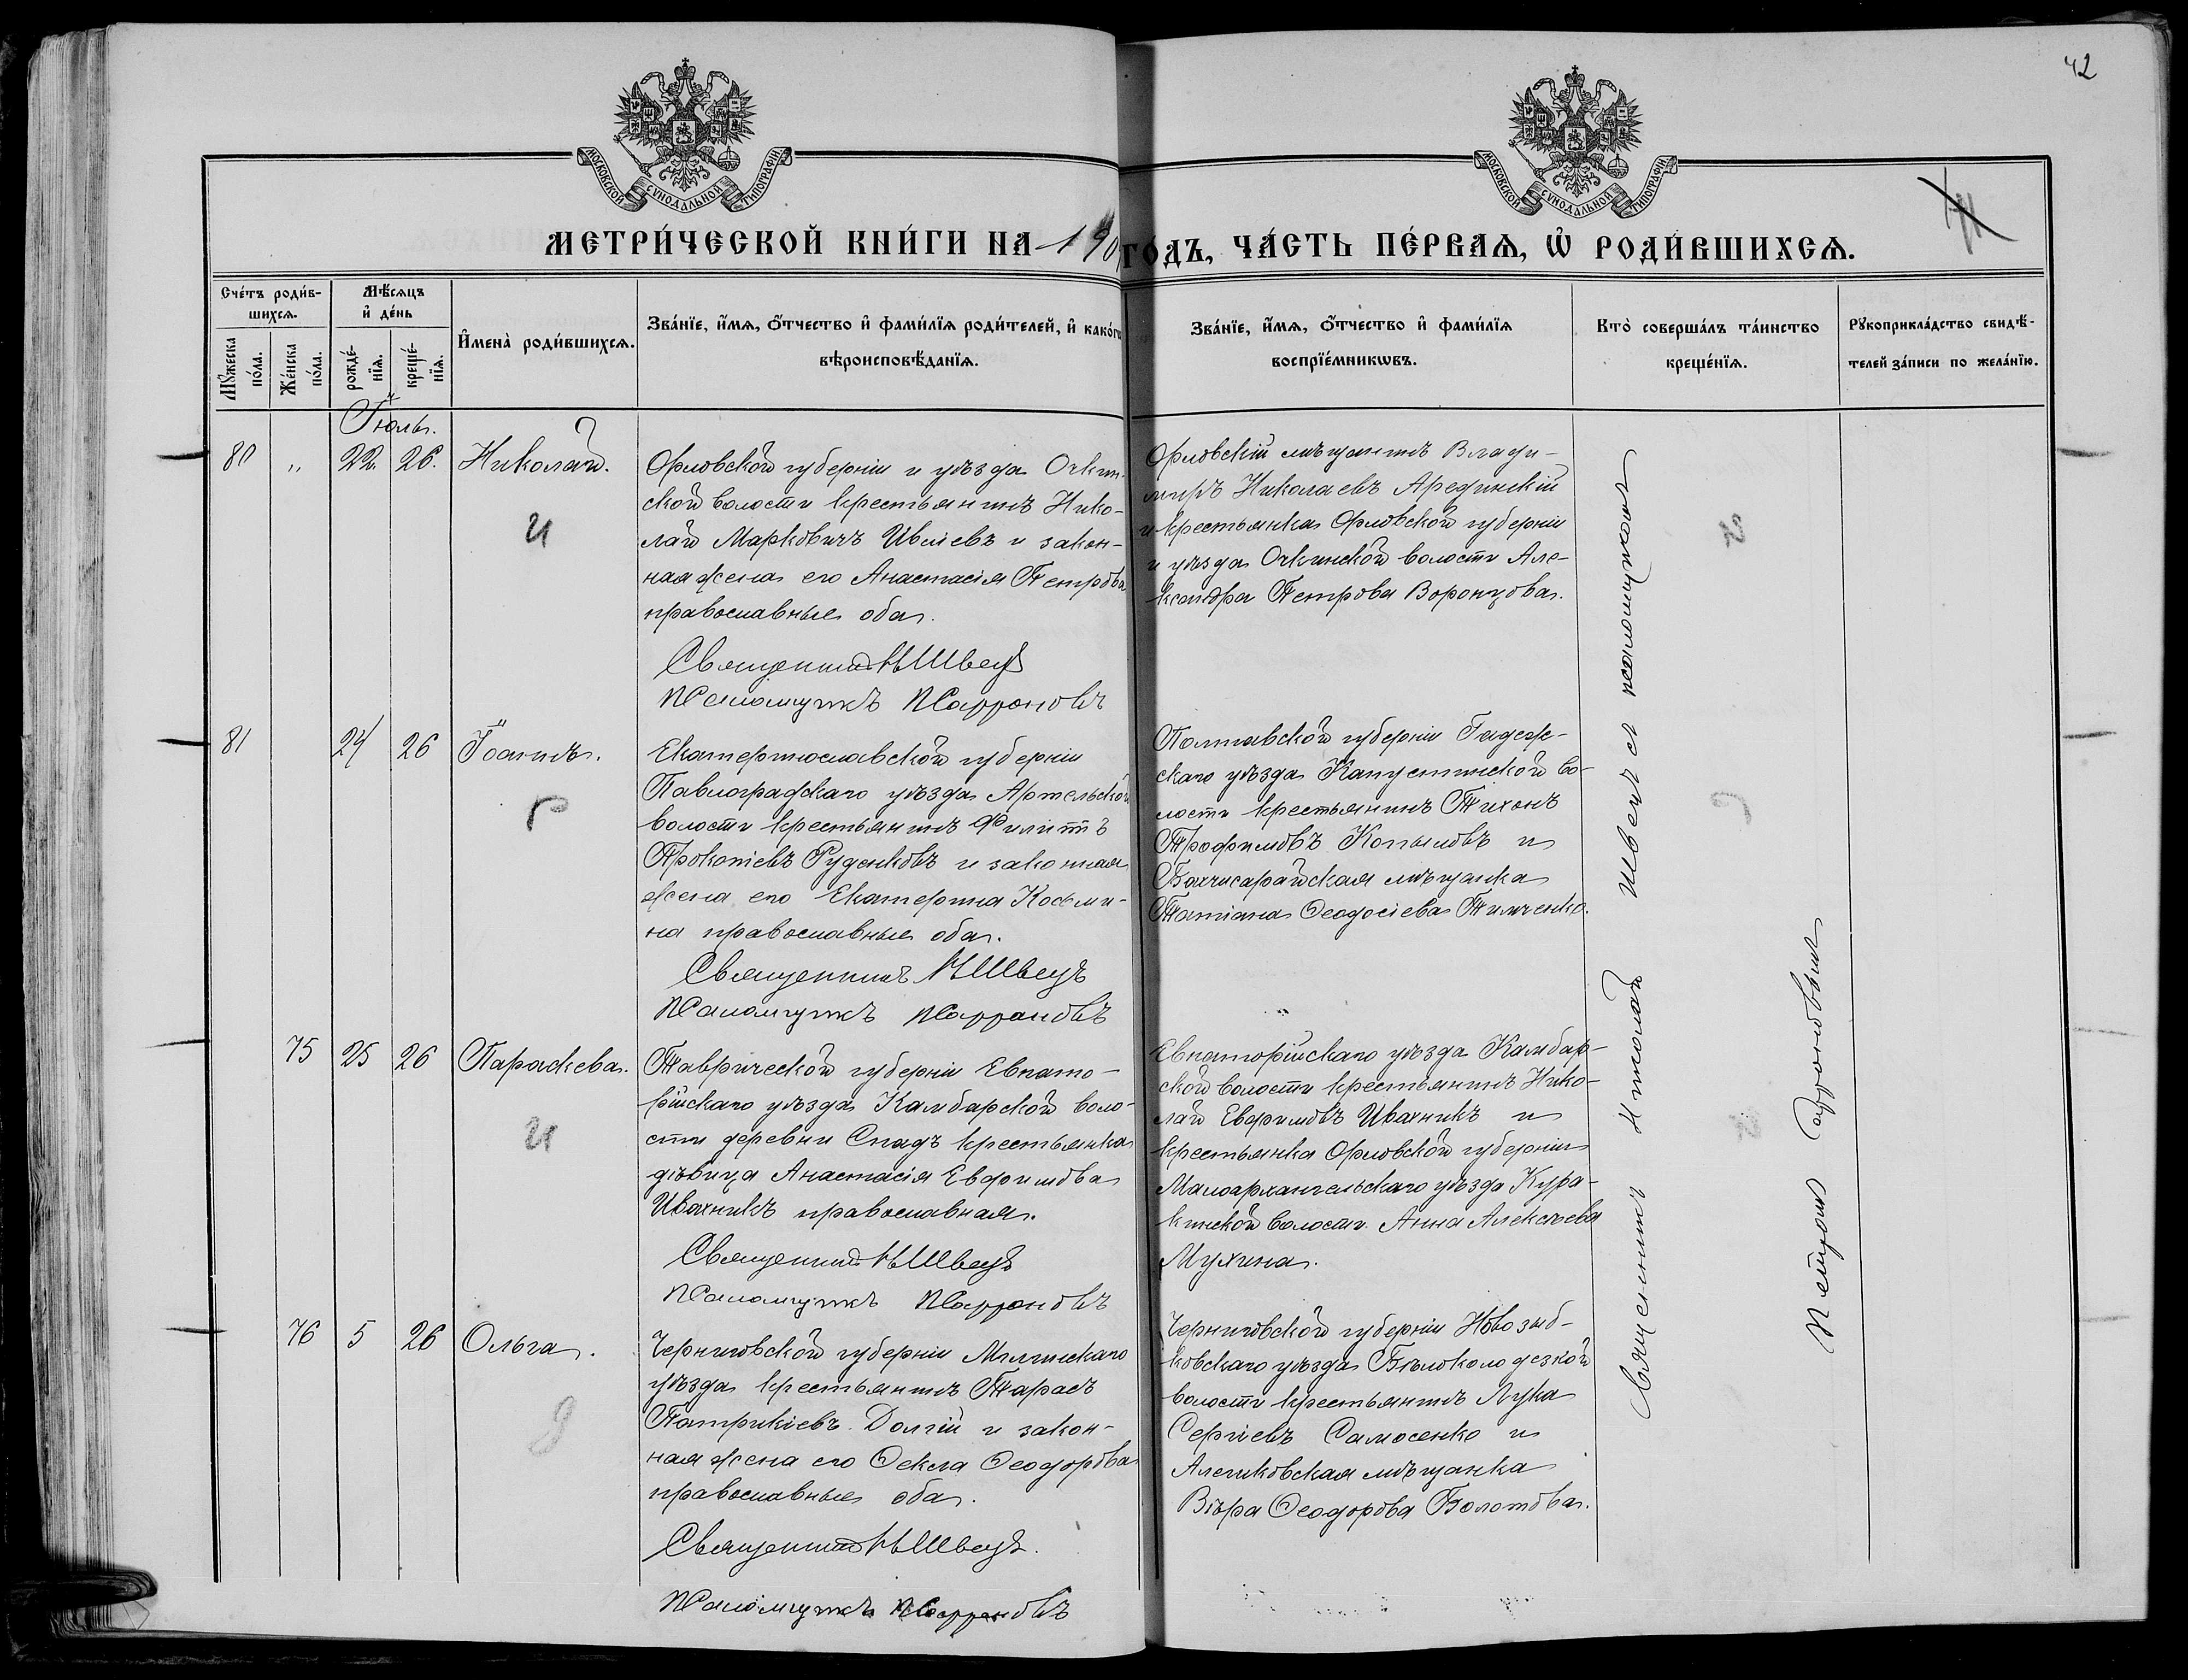 42
МОСКОВСКОЙ СѴНОДАЛЬНОЙ ТИПОГРАФІИ
МОСКОВСКОЙ СѴНОДАЛЬНОЙ ТИПОГРАФІИ
МЕТРИ́ЧЕСКОЙ КНИ́ГИ НА 190 ГО́ДЪ, ЧА́СТЬ ПЕ́РВАѦ, Ѡ҆ РОДИ́ВШИХСѦ.
Сче́тъ роди́в-
шихсѧ.
Мꙋ́жеска по́ла.
Же́нска по́ла.
Мѣ́сѧцъ
и҆ де́нь
рожде́-нїѧ.
креще́-нїѧ.
И҆мена̀ роди́вшихсѧ.
Зва́нїе, и҆́мѧ, ѻ҆́тчество и҆ фами́лїѧ роди́телей, и҆ како́гѡ
вѣроисповѣ́данїѧ.
Зва́нїе, и҆́мѧ, ѻ҆́тчество и҆ фами́лїѧ
воспрїе́мникѡвъ.
Кто̀ соверша́лъ та́инство
креще́нїѧ.
Рꙋкоприкла́дство свидѣ́-
телей за́писи по жела́нїю.
Іюль.
80 „ 22. 26. Николай.
Орловской губерніи и уѣзда Очкин-
ской волости крестьянинъ Нико-
лай Марковичъ Ивлiевъ и закон-
ная жена его Анастасія Петрова
православные оба.
Священникъ Н Швецъ
Псаломщикъ П Сафроновъ
Орловскій мѣщанинъ Влади-
миръ Николаевъ Арединскій
и крестьянка Орловской губерніи
и уѣзда Очкинской волости Але-
ксандра Петрова Воронцова.
И
81 24 26 Іоаннъ.
Екатеринославской губерніи
Павлоградскаго уѣзда Артельской
волости крестьянинъ Филиппъ
Прокопіевъ Руденковъ и законная
жена его Екатерина Косми-
на православные оба.
Священникъ Н Швецъ
Псаломщикъ П Сафроновъ
Полтавской губерніи Гадяч-
скаго уѣзда Капустинской во-
лости крестьянинъ Тихонъ
Трофимовъ Копыловъ и
Бахчисарайская мѣщанка
Татіана Ѳеодосіева Тимченко.
Р
75 25 26 Параскева.
Таврической губерніи Евпато-
рійскаго уѣзда Камбарской воло-
сти деревни Спадъ крестьянка
дѣвица Анастасія Евфимова
Ивахникъ православная.
Священникъ Н Швецъ
Псаломщикъ П Сафроновъ
Евпаторійскаго уѣзда Камбар-
ской волости крестьянинъ Нико-
лай Евфимовъ Ивахникъ и
крестьянка Орловской губерніи
Малоархангельскаго уѣзда Кура-
кинской волости Анна Алексѣева
Мухина.
И
76 5 26 Ольга.
Черниговской губерніи Мглинскаго
уѣзда крестьянинъ Тарасъ
Патрикіевъ Долгій и закон-
ная жена его Ѳекла Ѳеодорова
православные оба.
Священникъ Н Швецъ.
Псаломщикъ П Сафроновъ
Черниговской губерніи Новозыб-
ковскаго уѣзда Бѣлоколодезкой
волости крестьянинъ Лука
Сергіевъ Самосенко и
Алешковская мѣщанка
Вѣра Ѳеодорова Болотова.
Д
Священникъ Николай Швецъ съ псаломщикомъ
Петромъ Сафроновымъ